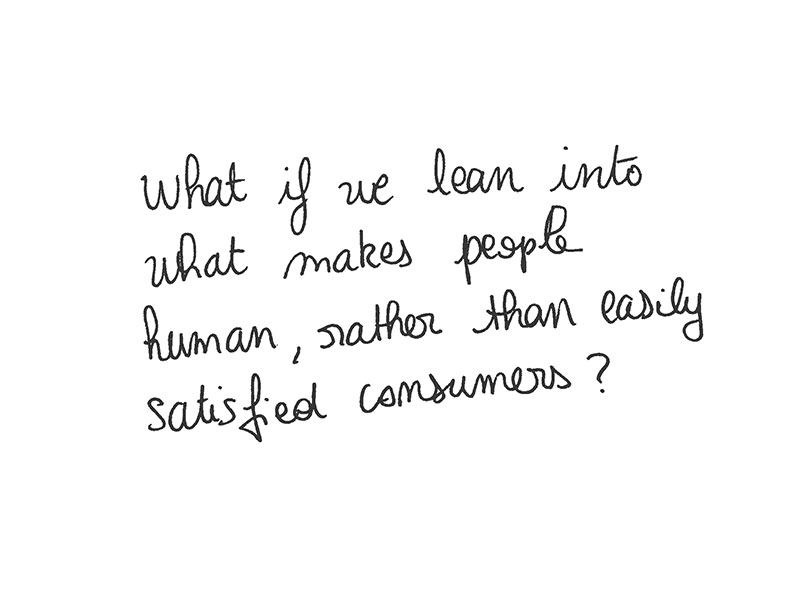 What if we lean into
what makes people
human, rather than easily
satisfied consumers?